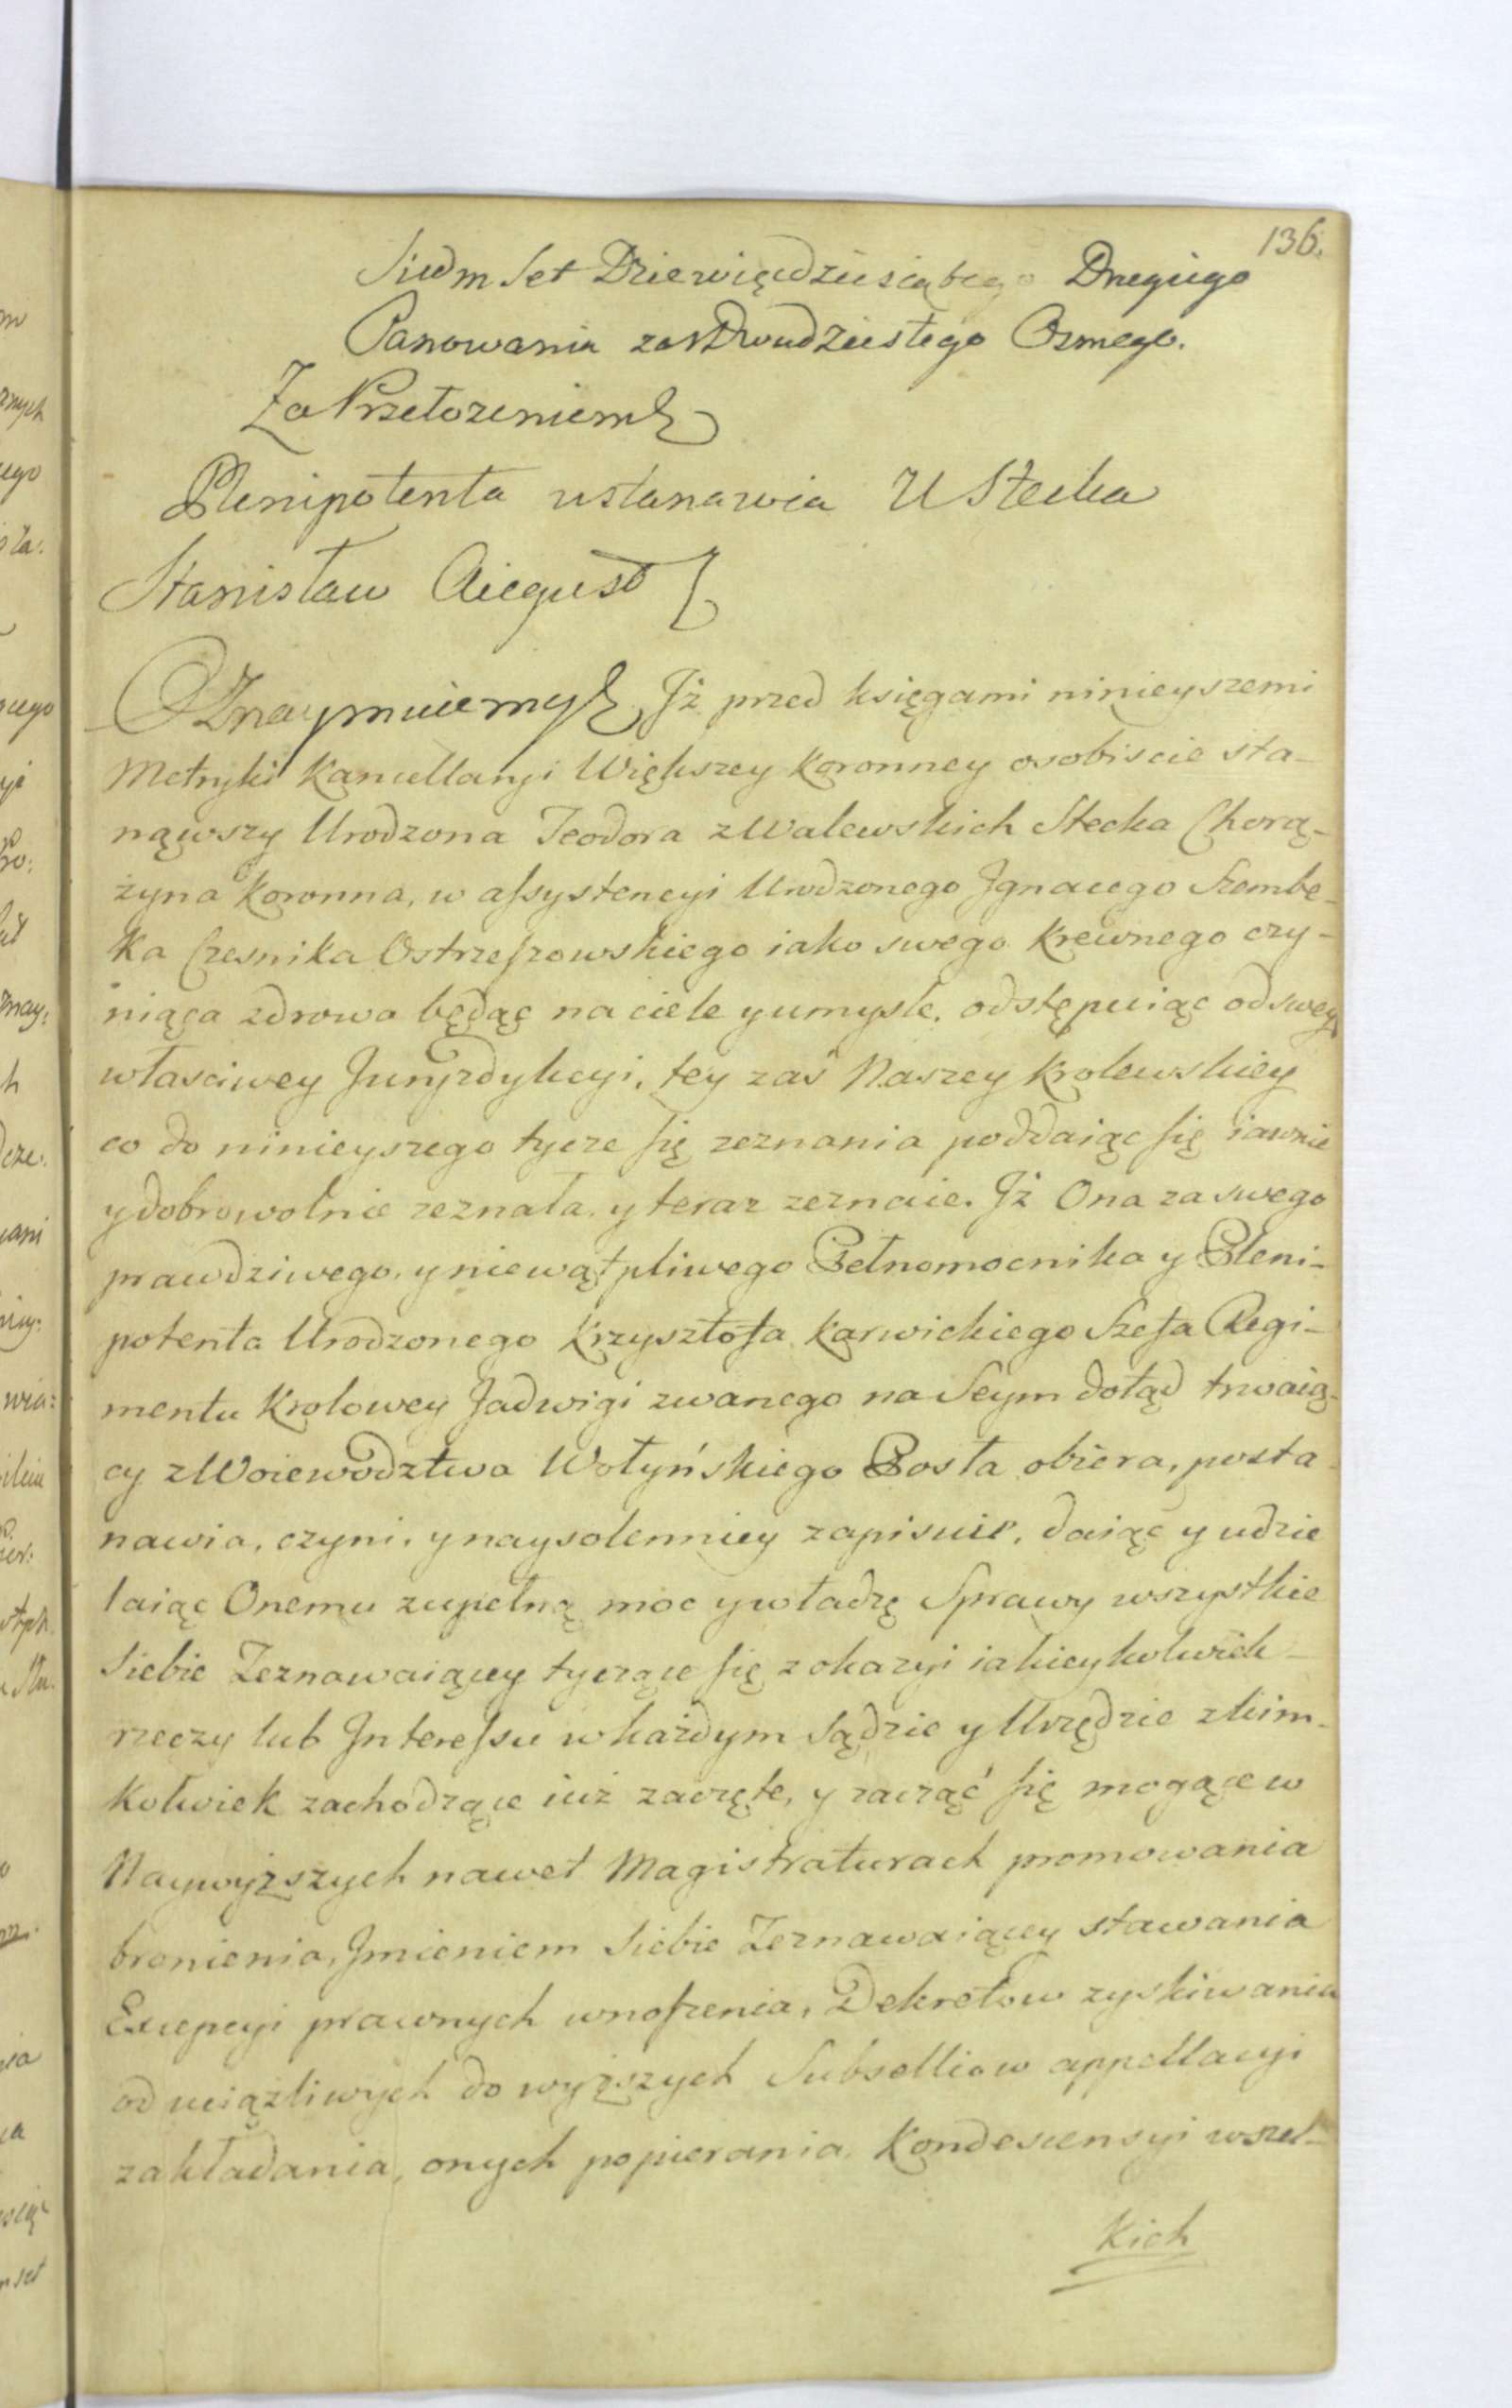 136.
Siedm Set Dziewięćdziesiątego Drugiego
Panowania zas Dwudziestego Osmego.
Za Przełożeniem
Plenipotenta ustanawia U Stecka
Stanisław August
Oznaymuiemy Jż przed księgami ninieyszemi
Metryki Kancellaryi Większey Koronney osobiscie sta-
nąwszy Urodzona Teodora z Walewskich Stecka Chorą-
żyna Koronna, w assystencyi Urodzonego Jgnacego Szembe-
ka Czesnika Ostrzeszowskiego iako swego Krewnego czy-
niąca zdrowa będąc na ciele y umysle, odstępuiąc od swey
własciwey Juryzdykcyi, tey zaś Naszey Krolewskiey
co do ninieyszego tycze się zeznania poddaiąc się iawnie
y dobrowolnie zeznała, y teraz zeznaie. Jż Ona za swego
prawdziwego, y niewątpliwego Pełnomocnika y Pleni-
potenta Urodzonego Krzysztofa Karwickiego Szefa Regi-
mentu Krolowey Jadwigi zwanego na Seym dotąd trwaią-
cy z Woiewodztwa Wołyńskiego Posła obiera, posta
nawia, czyni, y naysolenniey zapisuie, daiąc y udzie
laiąc Onemu zupełną moc y władzę Sprawy wszystkie
Siebie Zeznawaiącey tyczące się z okazyi iakieykolwiek
rzeczy lub Jnteressu w każdym Sądzie y Urzędzie z kim-
kolwiek zachodzące iuż zaczęte, y zacząć się mogące w
Naywyższych nawet Magistraturach promowania
bronienia, Jmieniem Siebie Zeznawaiącey stawania
Excepcyi prawnych wnoszenia, Dekretow zyskiwania
od uciążliwych do wyższych Subselliow appellacyi
zakładania, onych popierania, Kondescensyi wszel-
kich